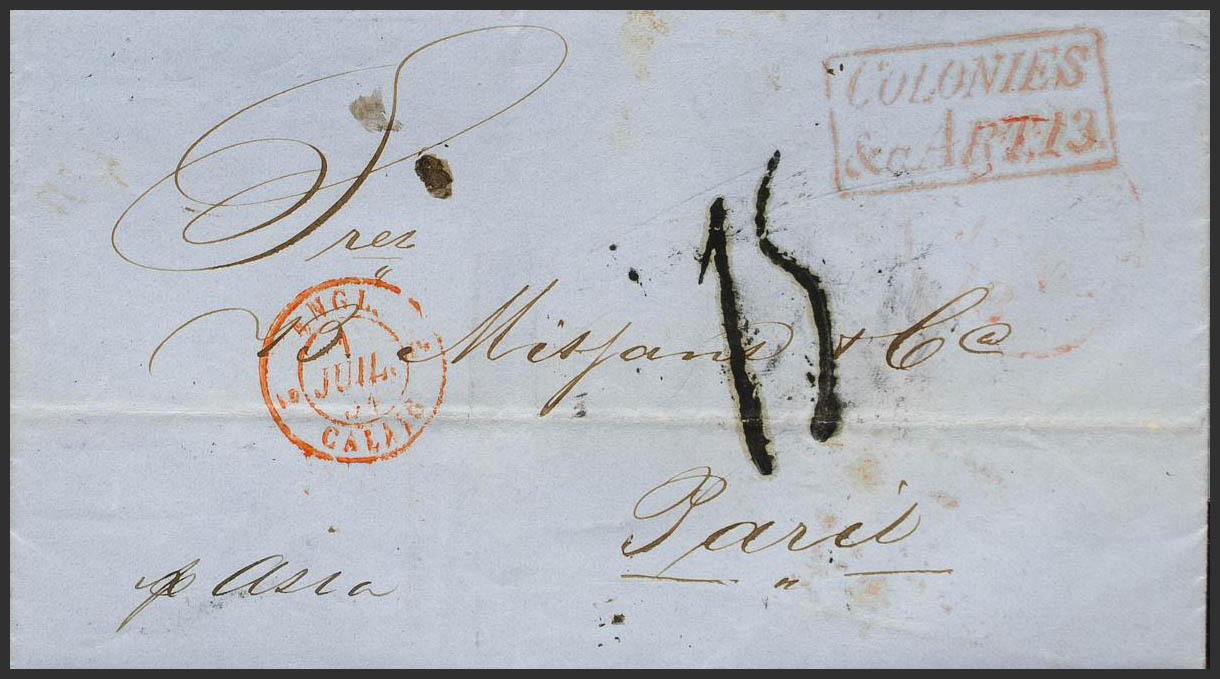 COLONIES
&c ART. 13.
Sres
B Mitjans & Ca
15
ENGL.
JUIL.
CALAIS
Paris
p Asia